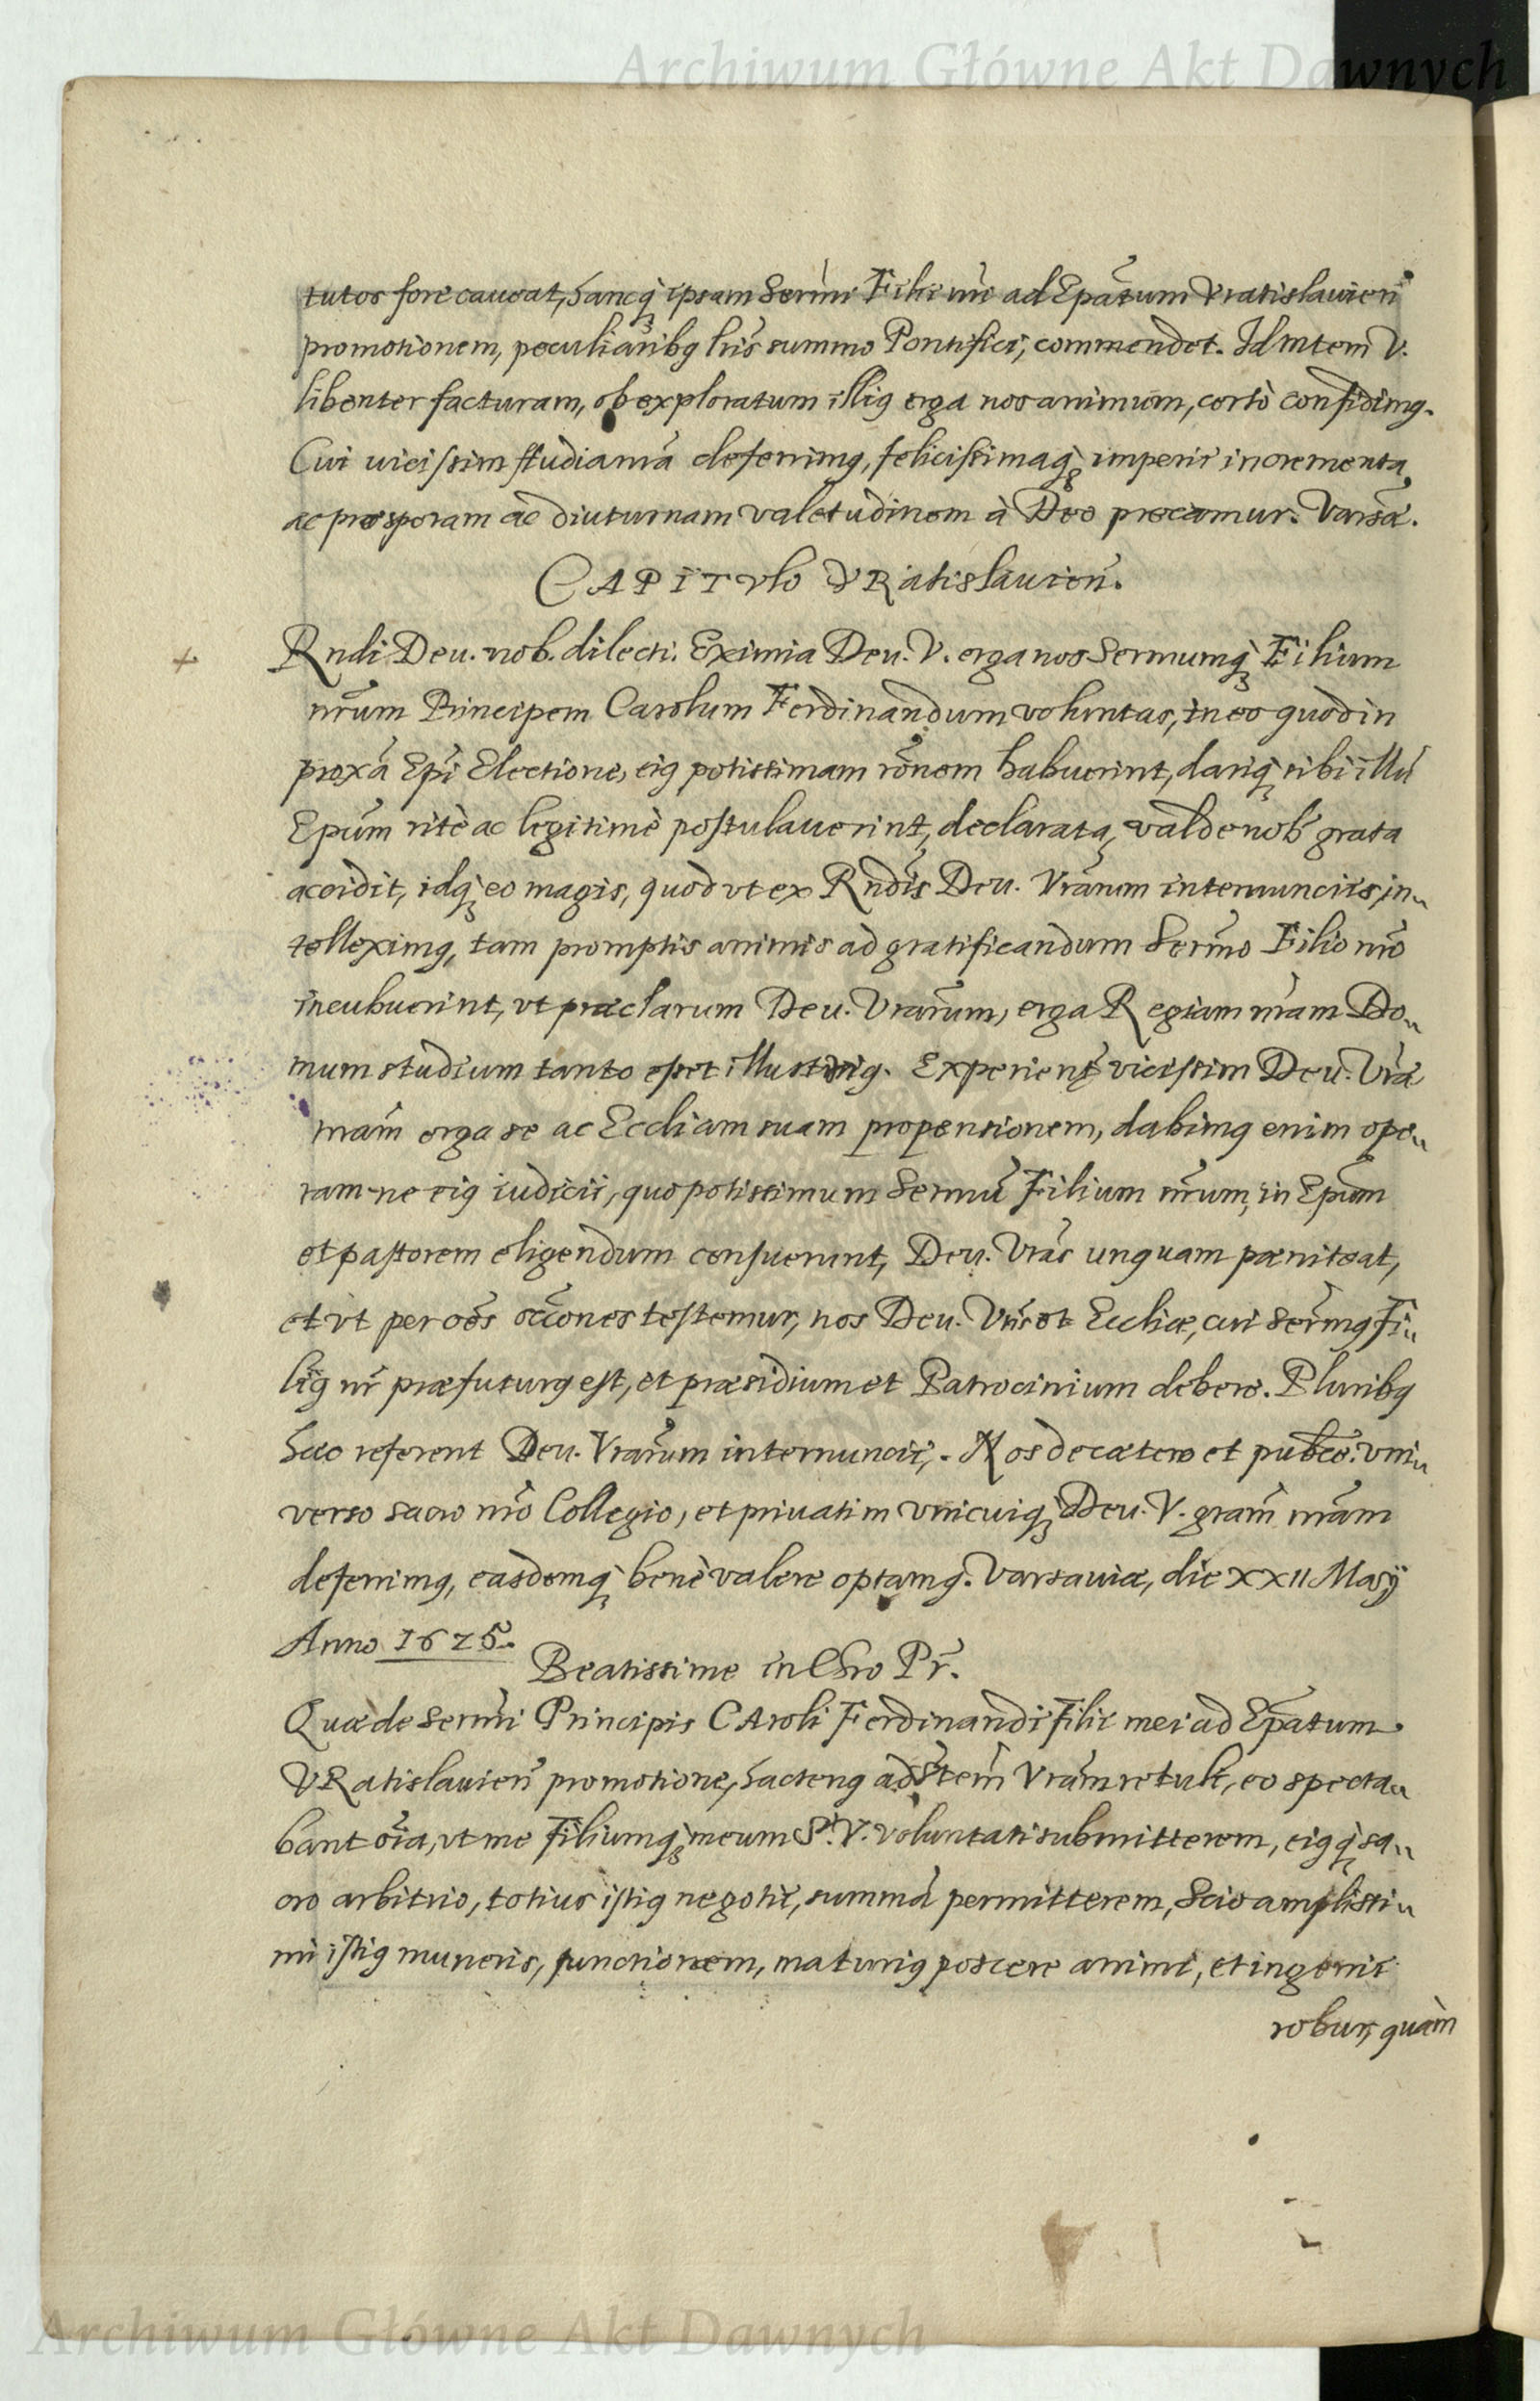 Archiwum Główne Akt Dawnych
tutos fore caveat, hancq́; ipsam Sermi Filii nri ad Epatum Vratislavien̄
promotionem, peculiaribq lris summo Pontifici, commendet. Id Mtem V.
libenter facturam, ob exploratum illiq erga nos animum, certò confidimq.
Cui vicissim studia nrā deferimq, felicissimaq́; imperii incrementa,
ac prosperam ac diuturnam valetudinem à Deo precamur. Varsā.
CAPITVlo VRatislavien̄.
+ Rndi Deu. nob. dilecti. Eximia Deu. V. erga nos Sermumq́; Filium
nrum Principem Carolum Ferdinandum voluntas, in eo quod in
proxā Epi Electione, eiq potissimam rōnem habuerint, dariq́; sibi illū
Epum ritè ac legitimè postulaverint, declarata, valde nob grata
accidit, idq́; eo magis, quod vt ex Rndis Deu. Vrarum internunciis in„
telleximq, tam promptis animis ad gratificandum Sermo Filio nro
incubuerint, vt præclarum Deu. Vrarum, erga Regiam nram Do„
mum studium tanto esset illustriq. Experient vicissim Deu. Vrā
nram erga se ac Eccliam suam propensionem, dabimq enim ope„
ram ne eiq iudicii, quo potissimum Sermū Filium nrum, in Epum
et pastorem eligendum censuerunt, Deu. Vras unquam pæniteat,
et vt per oēs occōnes testemur, nos Deu. Vris et Eccliæ, cui Sermq Fi„
liq nr præfuturq est, et præsidium et Patrocinium debere. Pluribq
hæc referent Deu. Vrarum internuncii,. Nos de cætero et pubcè. vni„
verso sacro nro Collegio, et privatim vnicuiq́; Deu. V. gram nram
deferimq, easdemq́; benè valere optamq. Varsaviæ, die XXII Maÿ
Anno 1625.
Beatissime in Chro Pr̄.
Quæ de Sermi Principis CAroli Ferdinandi Filii mei ad Epatum
VRatislavien̄ promotione, hactenq ad Stem Vram retuli, eo specta„
bant oīa, vt me Filiumq́; meum S.ti V. voluntati submitterem, eiqq́; sa„
cro arbitrio, totius istiq negotii, summā permitterem, Scio amplissi„
mi istiq muneris, functionem, maturiq poscere animi, et ingenii
robur, quàm
Archiwum Główne Akt Dawnych